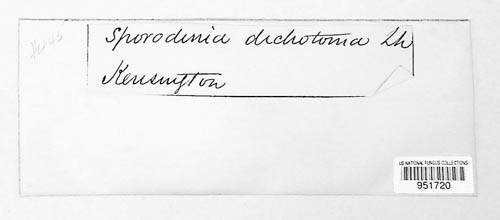 Sporodinia dichotoma Lk
Kensington
US NATIONAL FUNGUS COLLECTIONS
951720